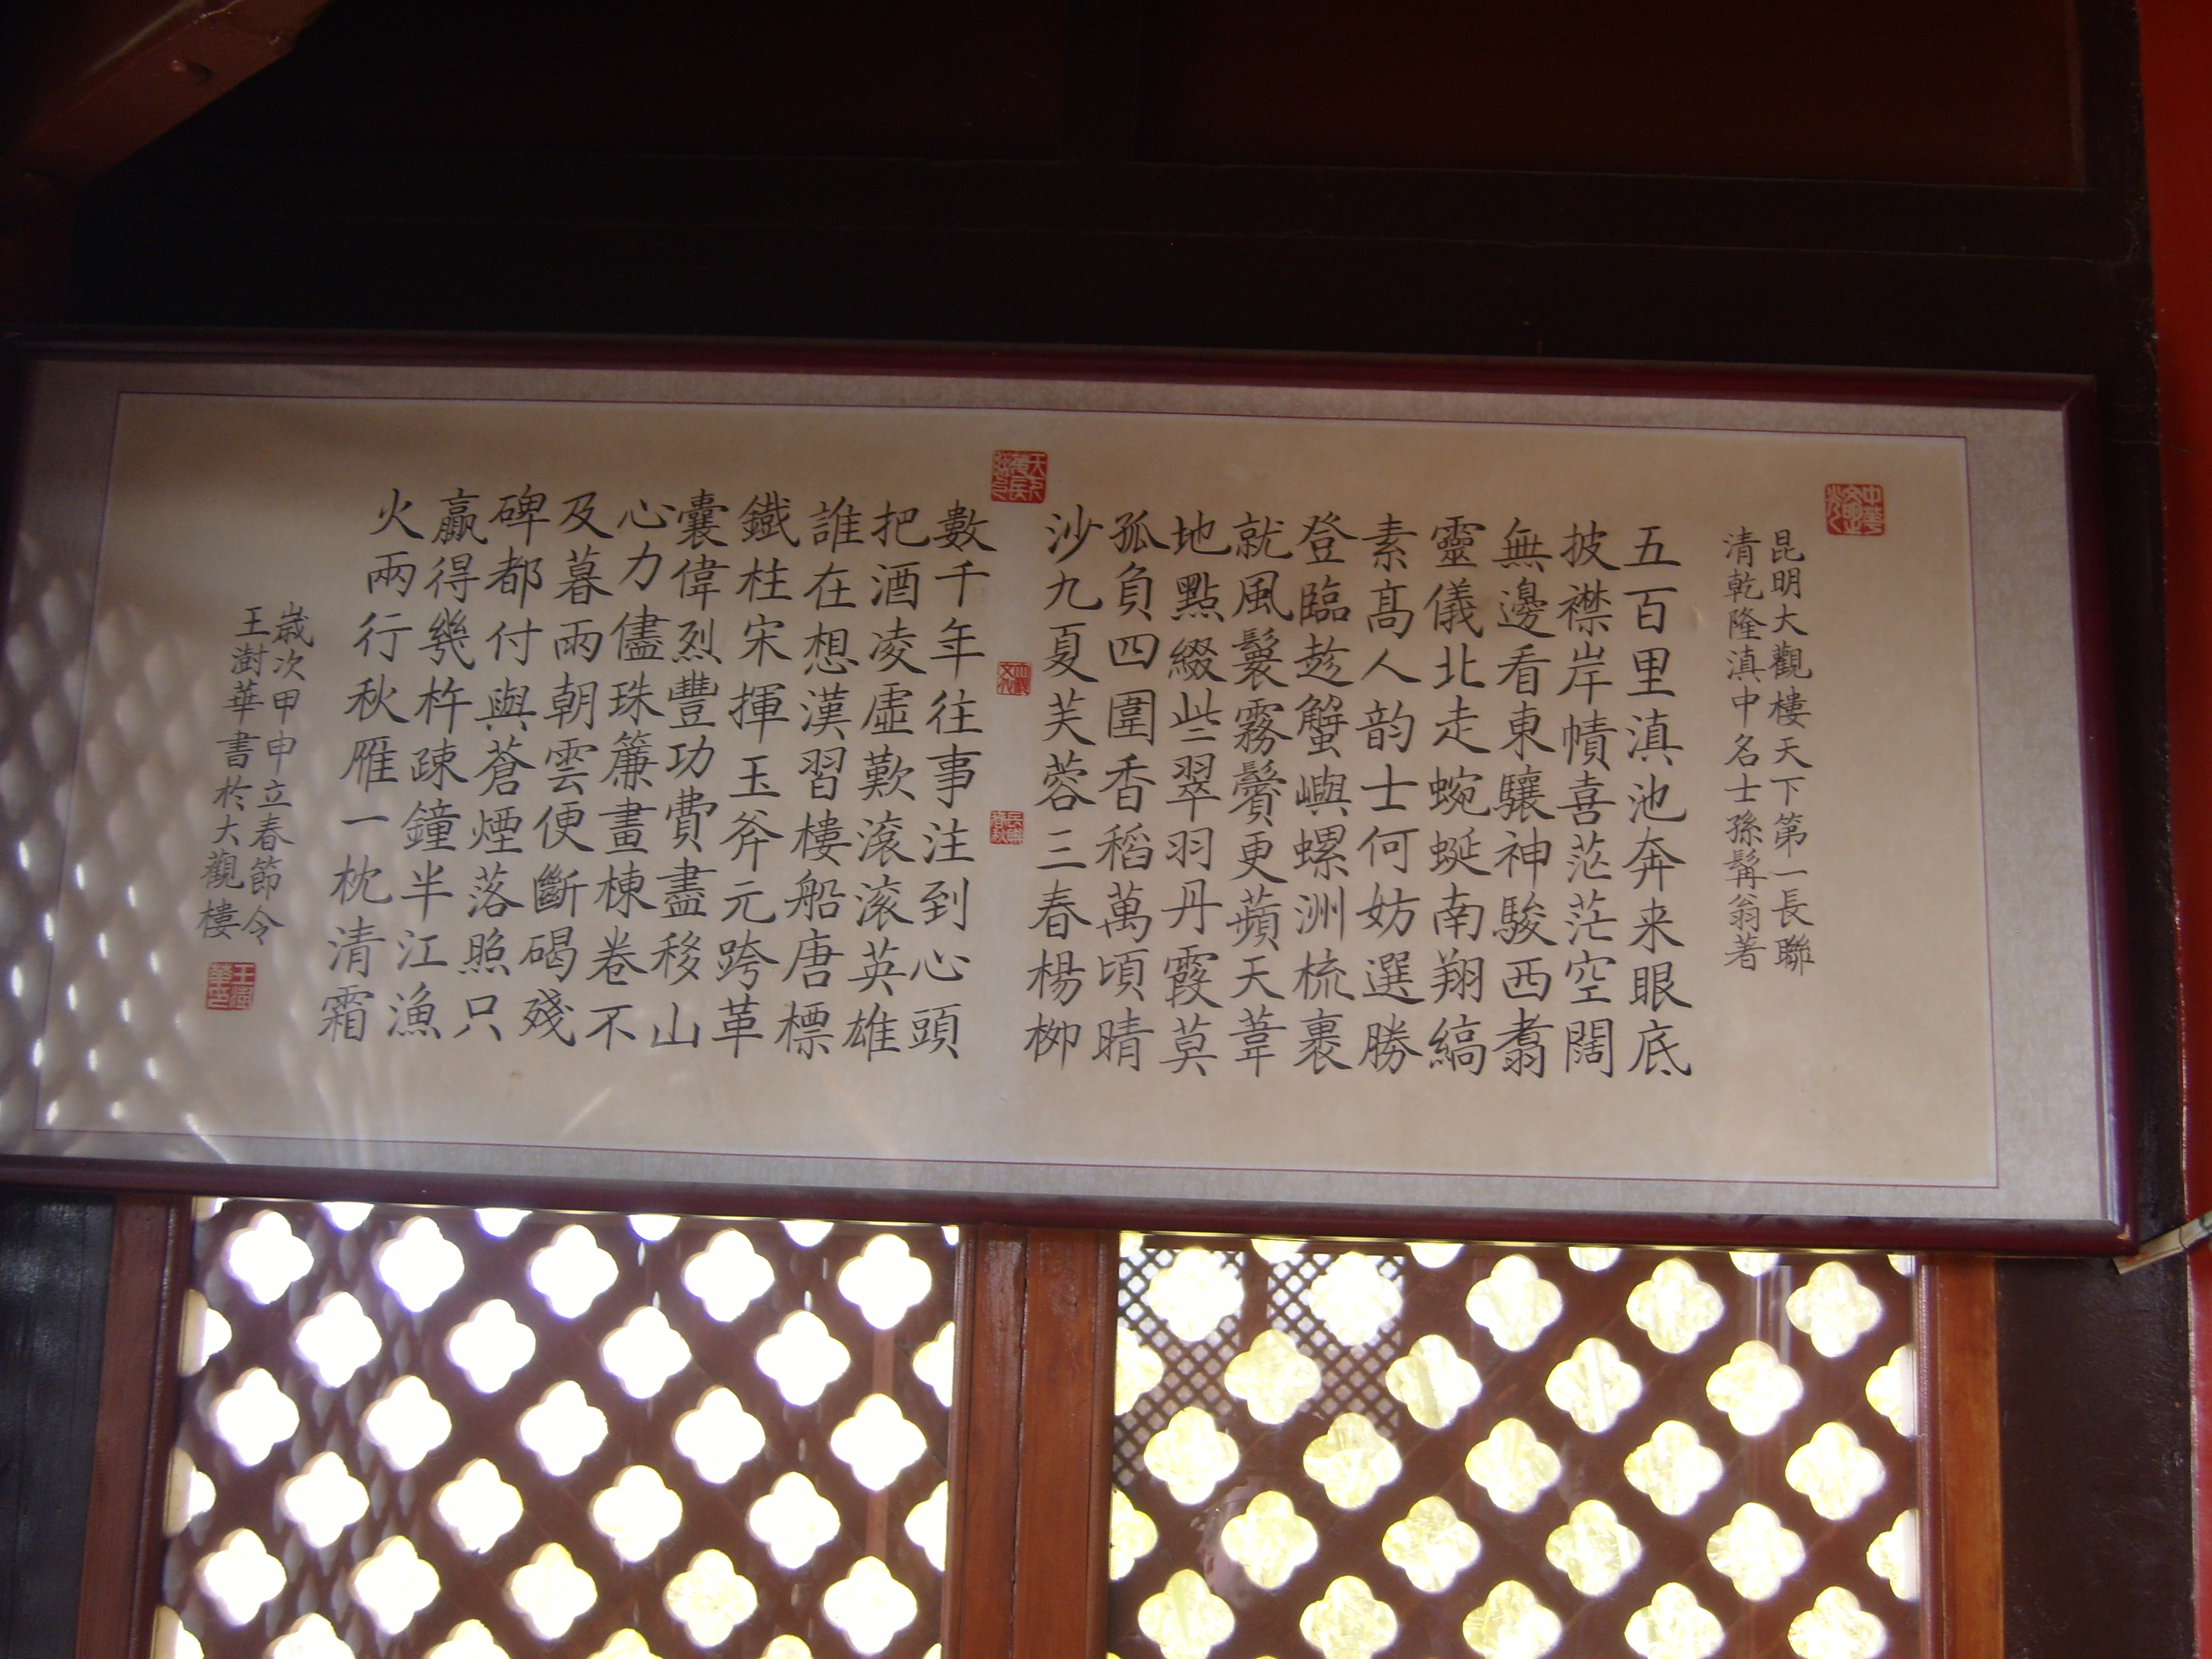 昆明大觀樓天下第一長聯
清乾隆滇中名士孫髯翁著
五百里滇池奔来眼底
披襟岸幘喜茫茫空闊
無邊看東驤神駿西翥
靈儀北走蜿蜒南翔縞
素髙人韵士何妨選勝
登臨趁蟹嶼螺洲梳裹
就風鬟霧鬢更蘋天葦
地點綴些翠羽丹霞莫
孤負四圍香稻萬頃晴
沙九夏芙蓉三春楊柳
數千年往事注到心頭
把酒凌虛歎滚滚英雄
誰在想漢習樓船唐標
鐵柱宋揮玉斧元跨革
囊偉烈豐功費盡移山
心力儘珠簾畫棟卷不
及暮雨朝雲便斷碣殘
碑都付與蒼煙落照只
贏得幾杵疎鐘半江漁
火兩行秋雁一枕清霜
歲次甲申立春節令
王澍華書於大觀樓